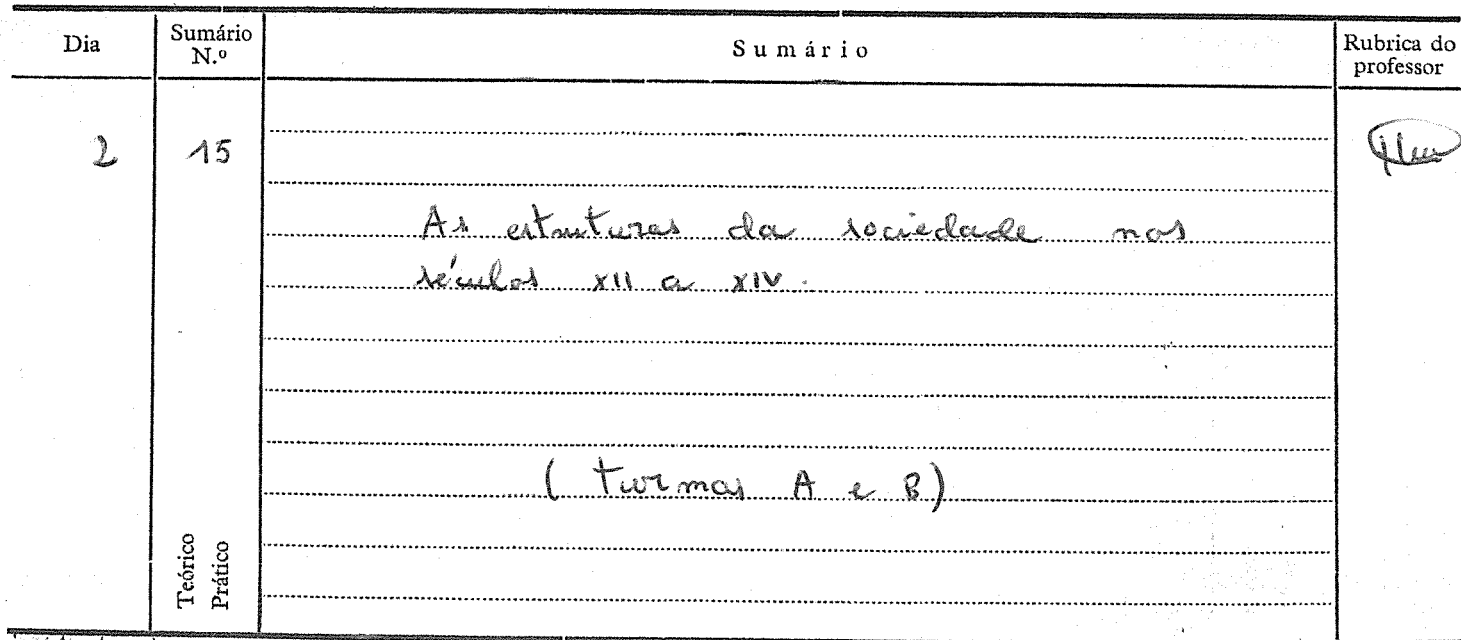 Dia
Sumário
N.º
Sumário
Rubrica do
professor
2
15
As estruturas da sociedade nos
séculos XII a XIV.
(turmas A e B)
Teórico
Prático